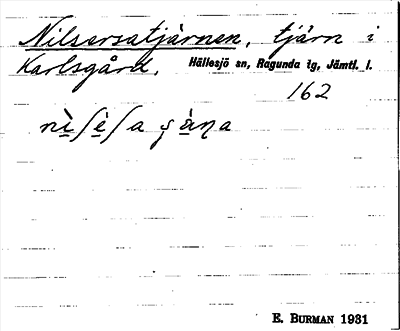 Nilsersatjärnen, tjärn i
Karlsgård. Hällesjö sn, Ragunda tg, Jämtl. l.
162
E. BURMAN 1931